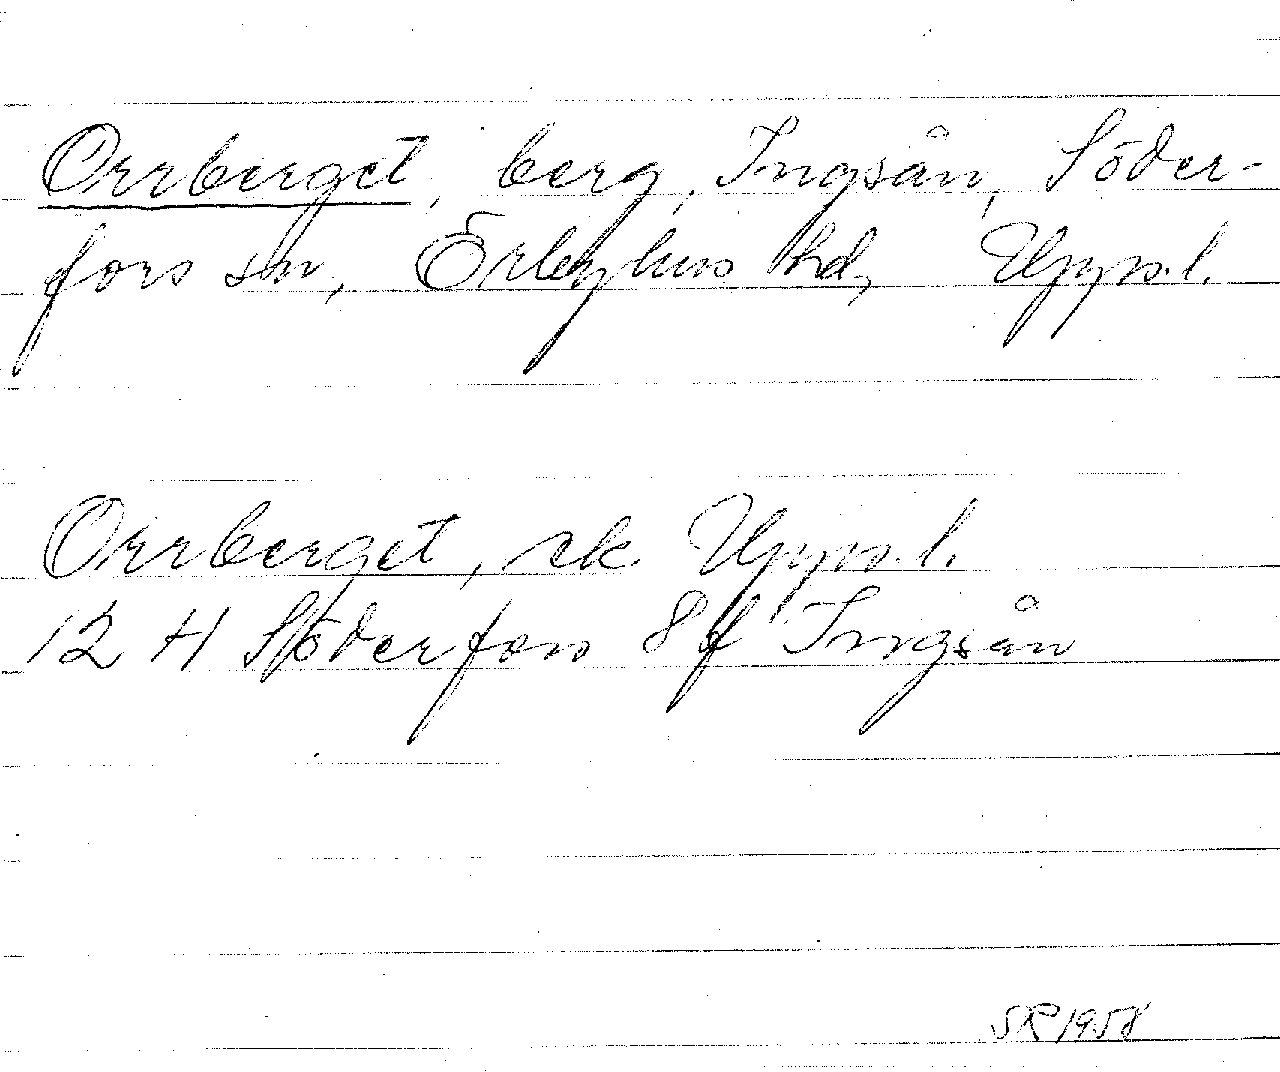 Orrberget, berg, Ingsån, Söder-
fors sn, Örbyhus hd, Upps.l.
Orrberget, ek. Upps.l.
12 H Söderfors 8f Ingsån
SR 1958